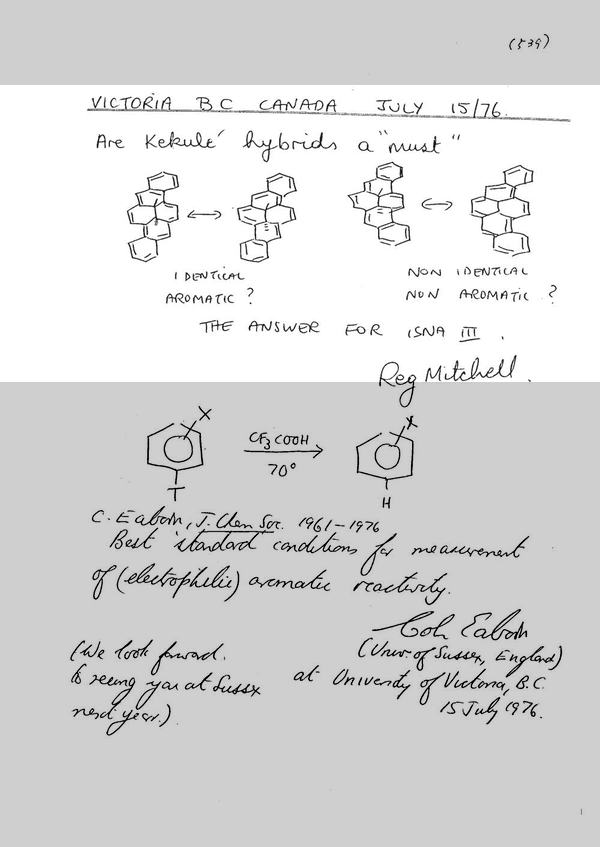 (539)
VICTORIA B C CANADA JULY 15/76.
Are Kekulé hybrids a "must"
IDENTICAL
AROMATIC ?
NON IDENTICAL
NON AROMATIC ?
THE ANSWER FOR ISNA III .
Reg Mitchell.
X
CF3COOH
X
70°
T
H
C. Eaborn, J. Chem Soc. 1961-1976
Best 'standard' conditions for measurement
of (electrophilic) aromatic reactivity.
Colin Eaborn
(Univ. of Sussex, England)
at University of Victoria, B.C.
15 July 1976.
(We look forward.
to seeing you at Sussex
next year.)
1